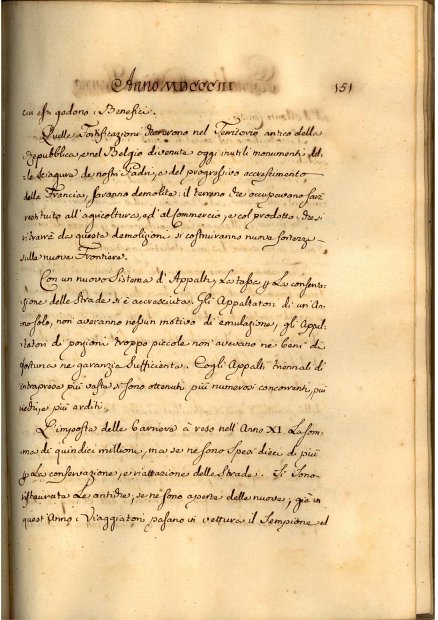 Anno MDCCCIII 151
cui essi godono i Benefici.
Quelle Fortificazioni che erano nel Territorio antico della
Repubblica, e nel Belgio divenute oggi inutili monumenti del-
le sciagure de nostri Padri, e del progressivo accrescimento
della Francia, saranno demolite: il terreno che occupavano sarà
restituito all'agricoltura, ed al Commercio, e col prodotto che si
ritrarrà da queste demolizioni si costruiranno nuove fortezze
sulle nuove Frontiere.
Con un nuovo Sistema d'Appalti, La tassa p La conserva-
zione delle Strade si è accresciuta. Gli Appaltatori di un An-
no solo, non averanno nessun motivo di emulazione, gli Appal-
tatori di porzioni troppo piccole non avevano ne beni di
fortuna ne garanzia sufficiente. Cogli Appalti triennali di
intrapresa più vasta si sono ottenuti più numerosi concorrenti, più
ricchi, e più arditi.
L'imposta delle Barriere à reso nell'Anno XI. La som-
ma di quindici millioni, ma se ne sono spesi dieci di più
p La conservazione, e riattazione delle Strade. Si sono
ristaurate Le antiche, se ne sono aperte delle nuove; già in
quest'Anno i Viaggiatori passano in vettura il Sempione ed